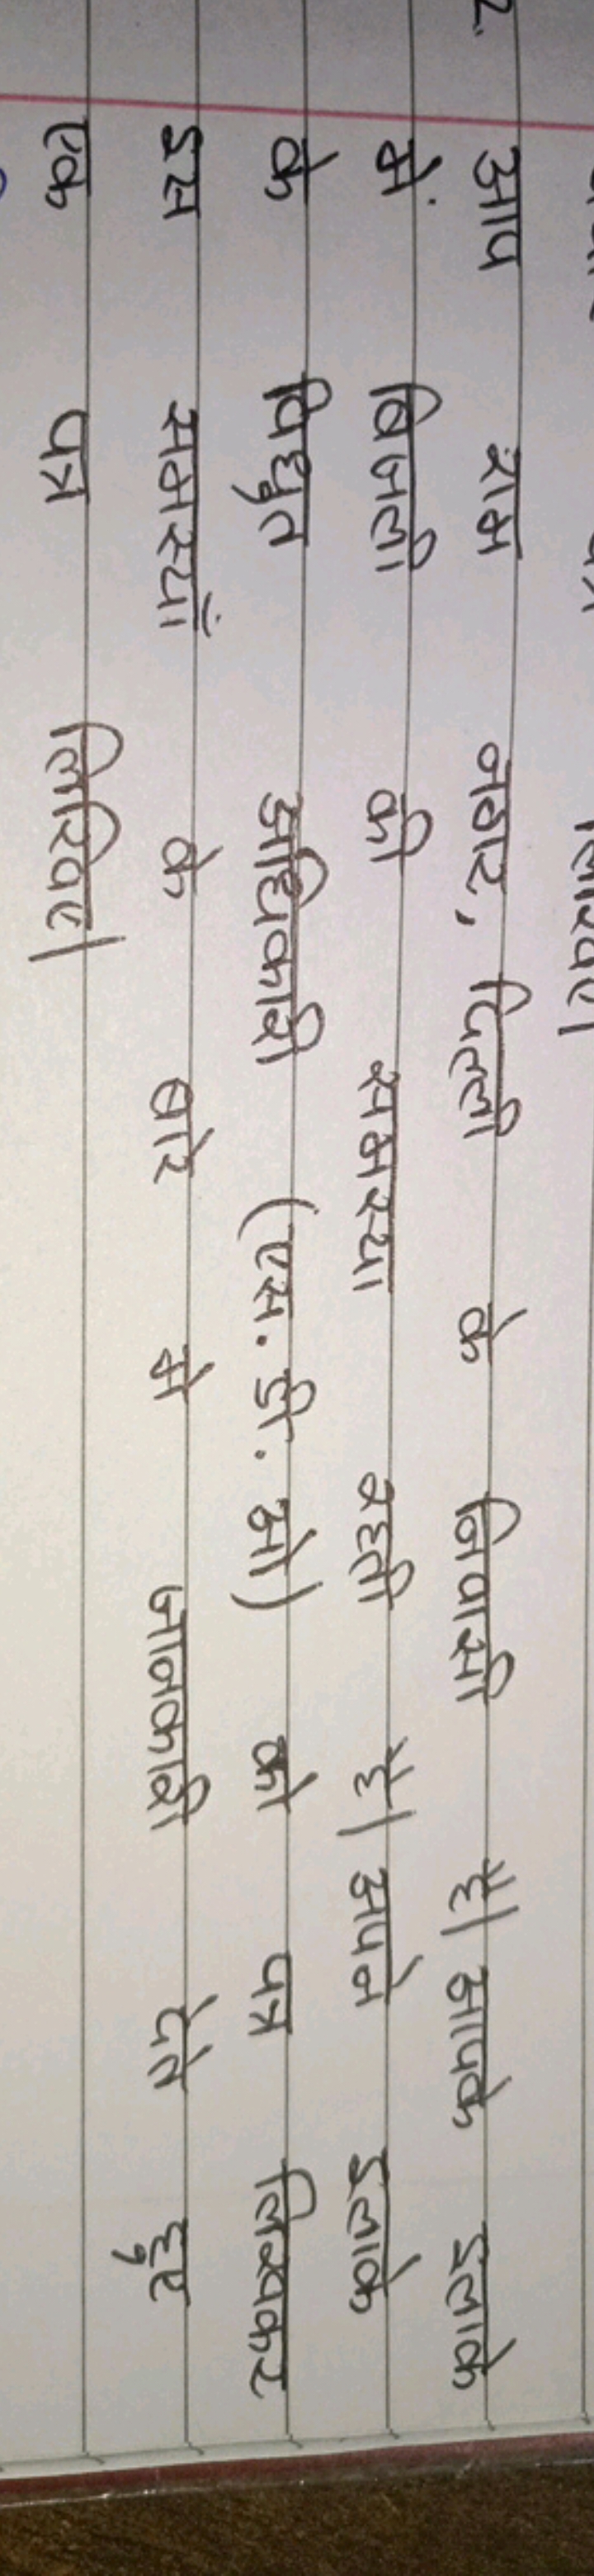 लिखिए।
2. आप राम नगर, दिल्ली के निवासी है। आपके इलाके
में बिजली की समस्या रहती है। अपने इलाके
के विधुत अधिकारी (एस. डी. ओ) को पत्र लिखकर
इस समस्याँ के बारे मे जानकारी देते हुए
एक पत्र लिखिए।